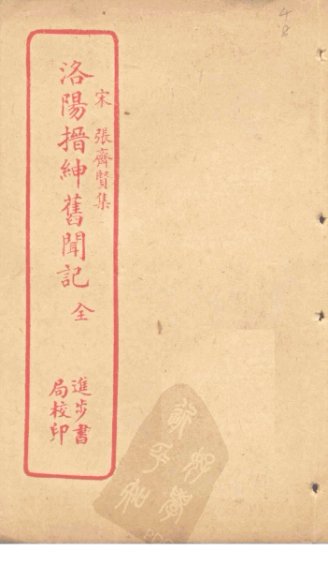 宋 張齊賢集
洛陽搢紳舊聞記 全
進步書
局校印